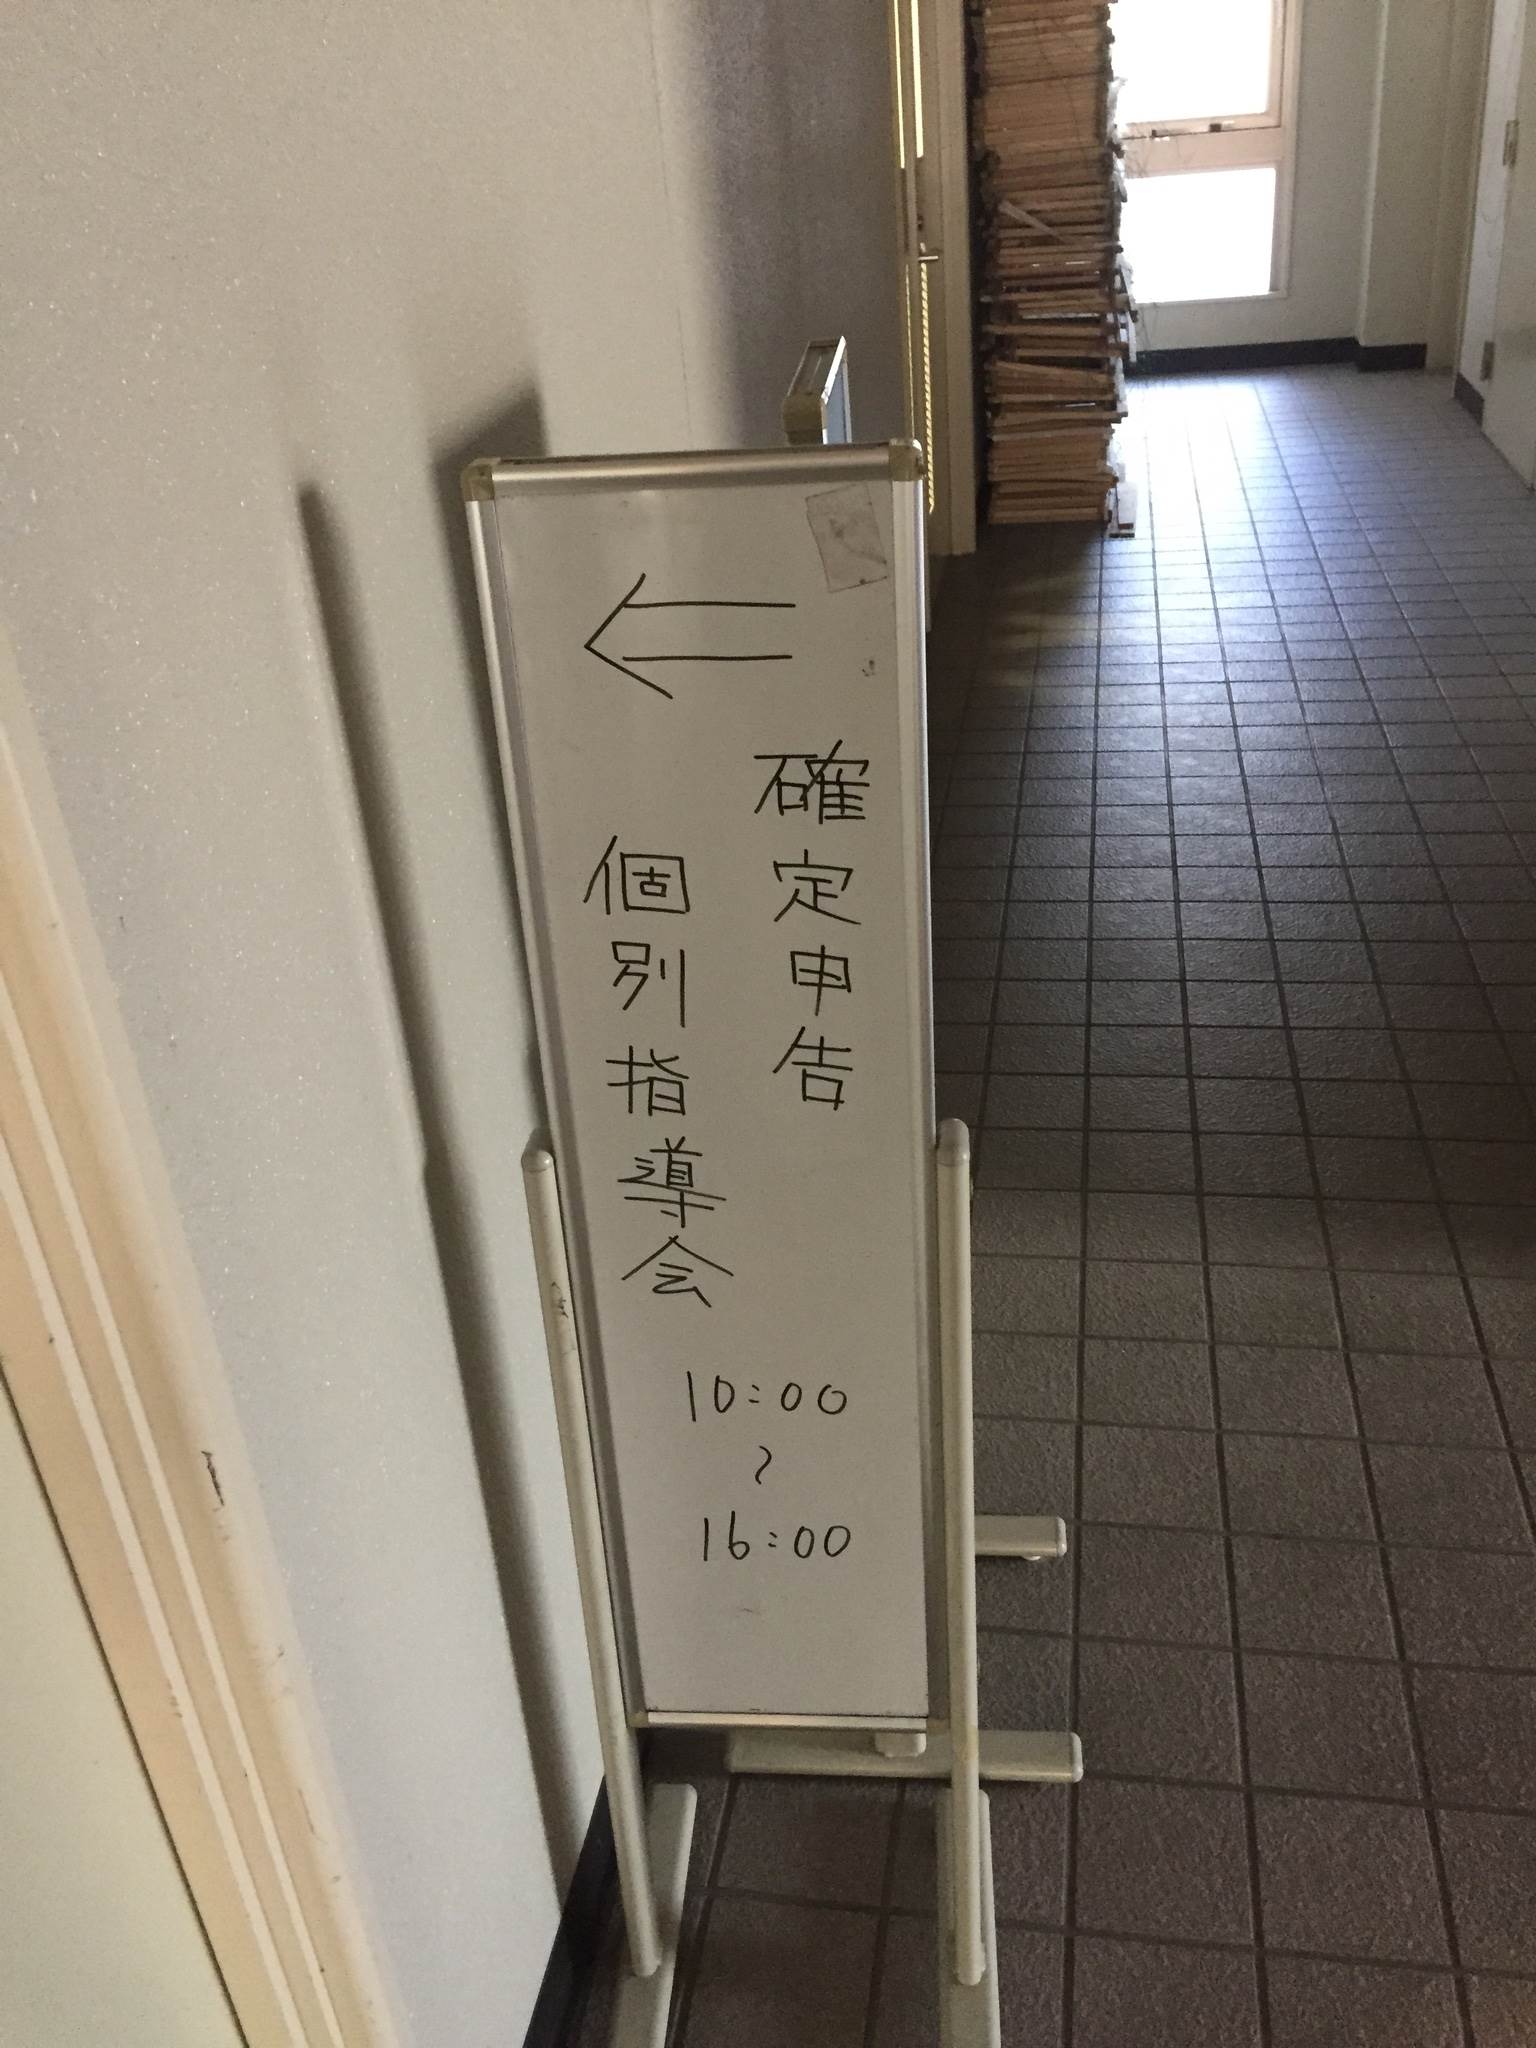 確定申告
個別指導会
10:00
~
16:00